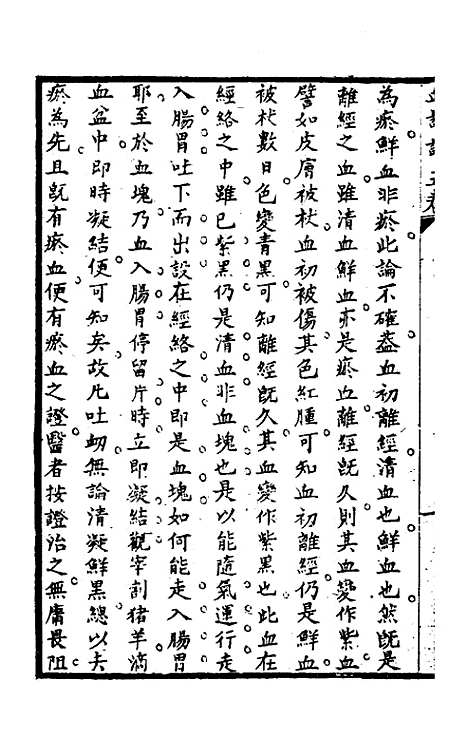 為瘀鮮血非瘀此論不確蓋血初離經清血也鮮血也然旣是
離經之血雖清血鮮血亦是瘀血離經旣久則其血變作紫血
譬如皮膚被杖血初被傷其色紅腫可知血初離經仍是鮮血
被杖數日色變青黑可知離經旣久其血變作紫黑也此血在
經絡之中雖已紫黑仍是清血非血塊也是以能隨氣運行走
入腸胃吐下而出設在經絡之中即是血塊如何能走入腸胃
耶至於血塊乃血入腸胃停留片時立即凝結觀宰割猪羊滴
血盆中即時凝結便可知矣故凡吐衄無論清凝鮮黑總以去
瘀為先且旣有瘀血便有瘀血之證醫者按證治之無庸畏阻